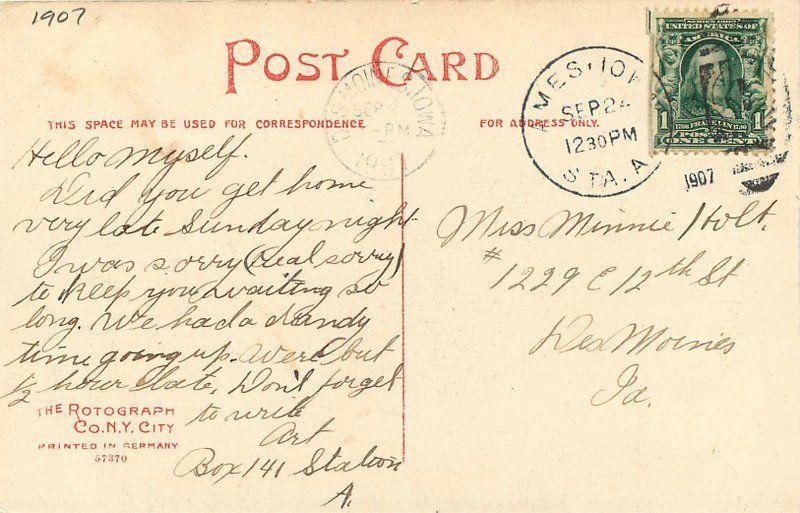 1907
POST CARD
THIS SPACE MAY BE USED FOR CORRESPONDENCE
FOR ADDRESS ONLY.
DES MOINES, IOWA
SEP
-PM
AMES, IOW
SEP 24
12 30 PM
STA. A
1907
SERIES 1902
UNITED STATES OF
AMERICA
1 FRANKLIN 1
POSTAGE
ONE CENT
Hello Myself.
Did you get home
very late Sunday night
I was sorry (real sorry)
to keep you waiting so
long. We had a dandy
time going up. Were but
1/2 hour late. Don't forget
to write
Art
Box 141 Station
A.
Miss Minnie Holt.
# 1229 E 12th St
Des Moines
Ia.
THE ROTOGRAPH
CO. N.Y. CITY
PRINTED IN GERMANY
57370